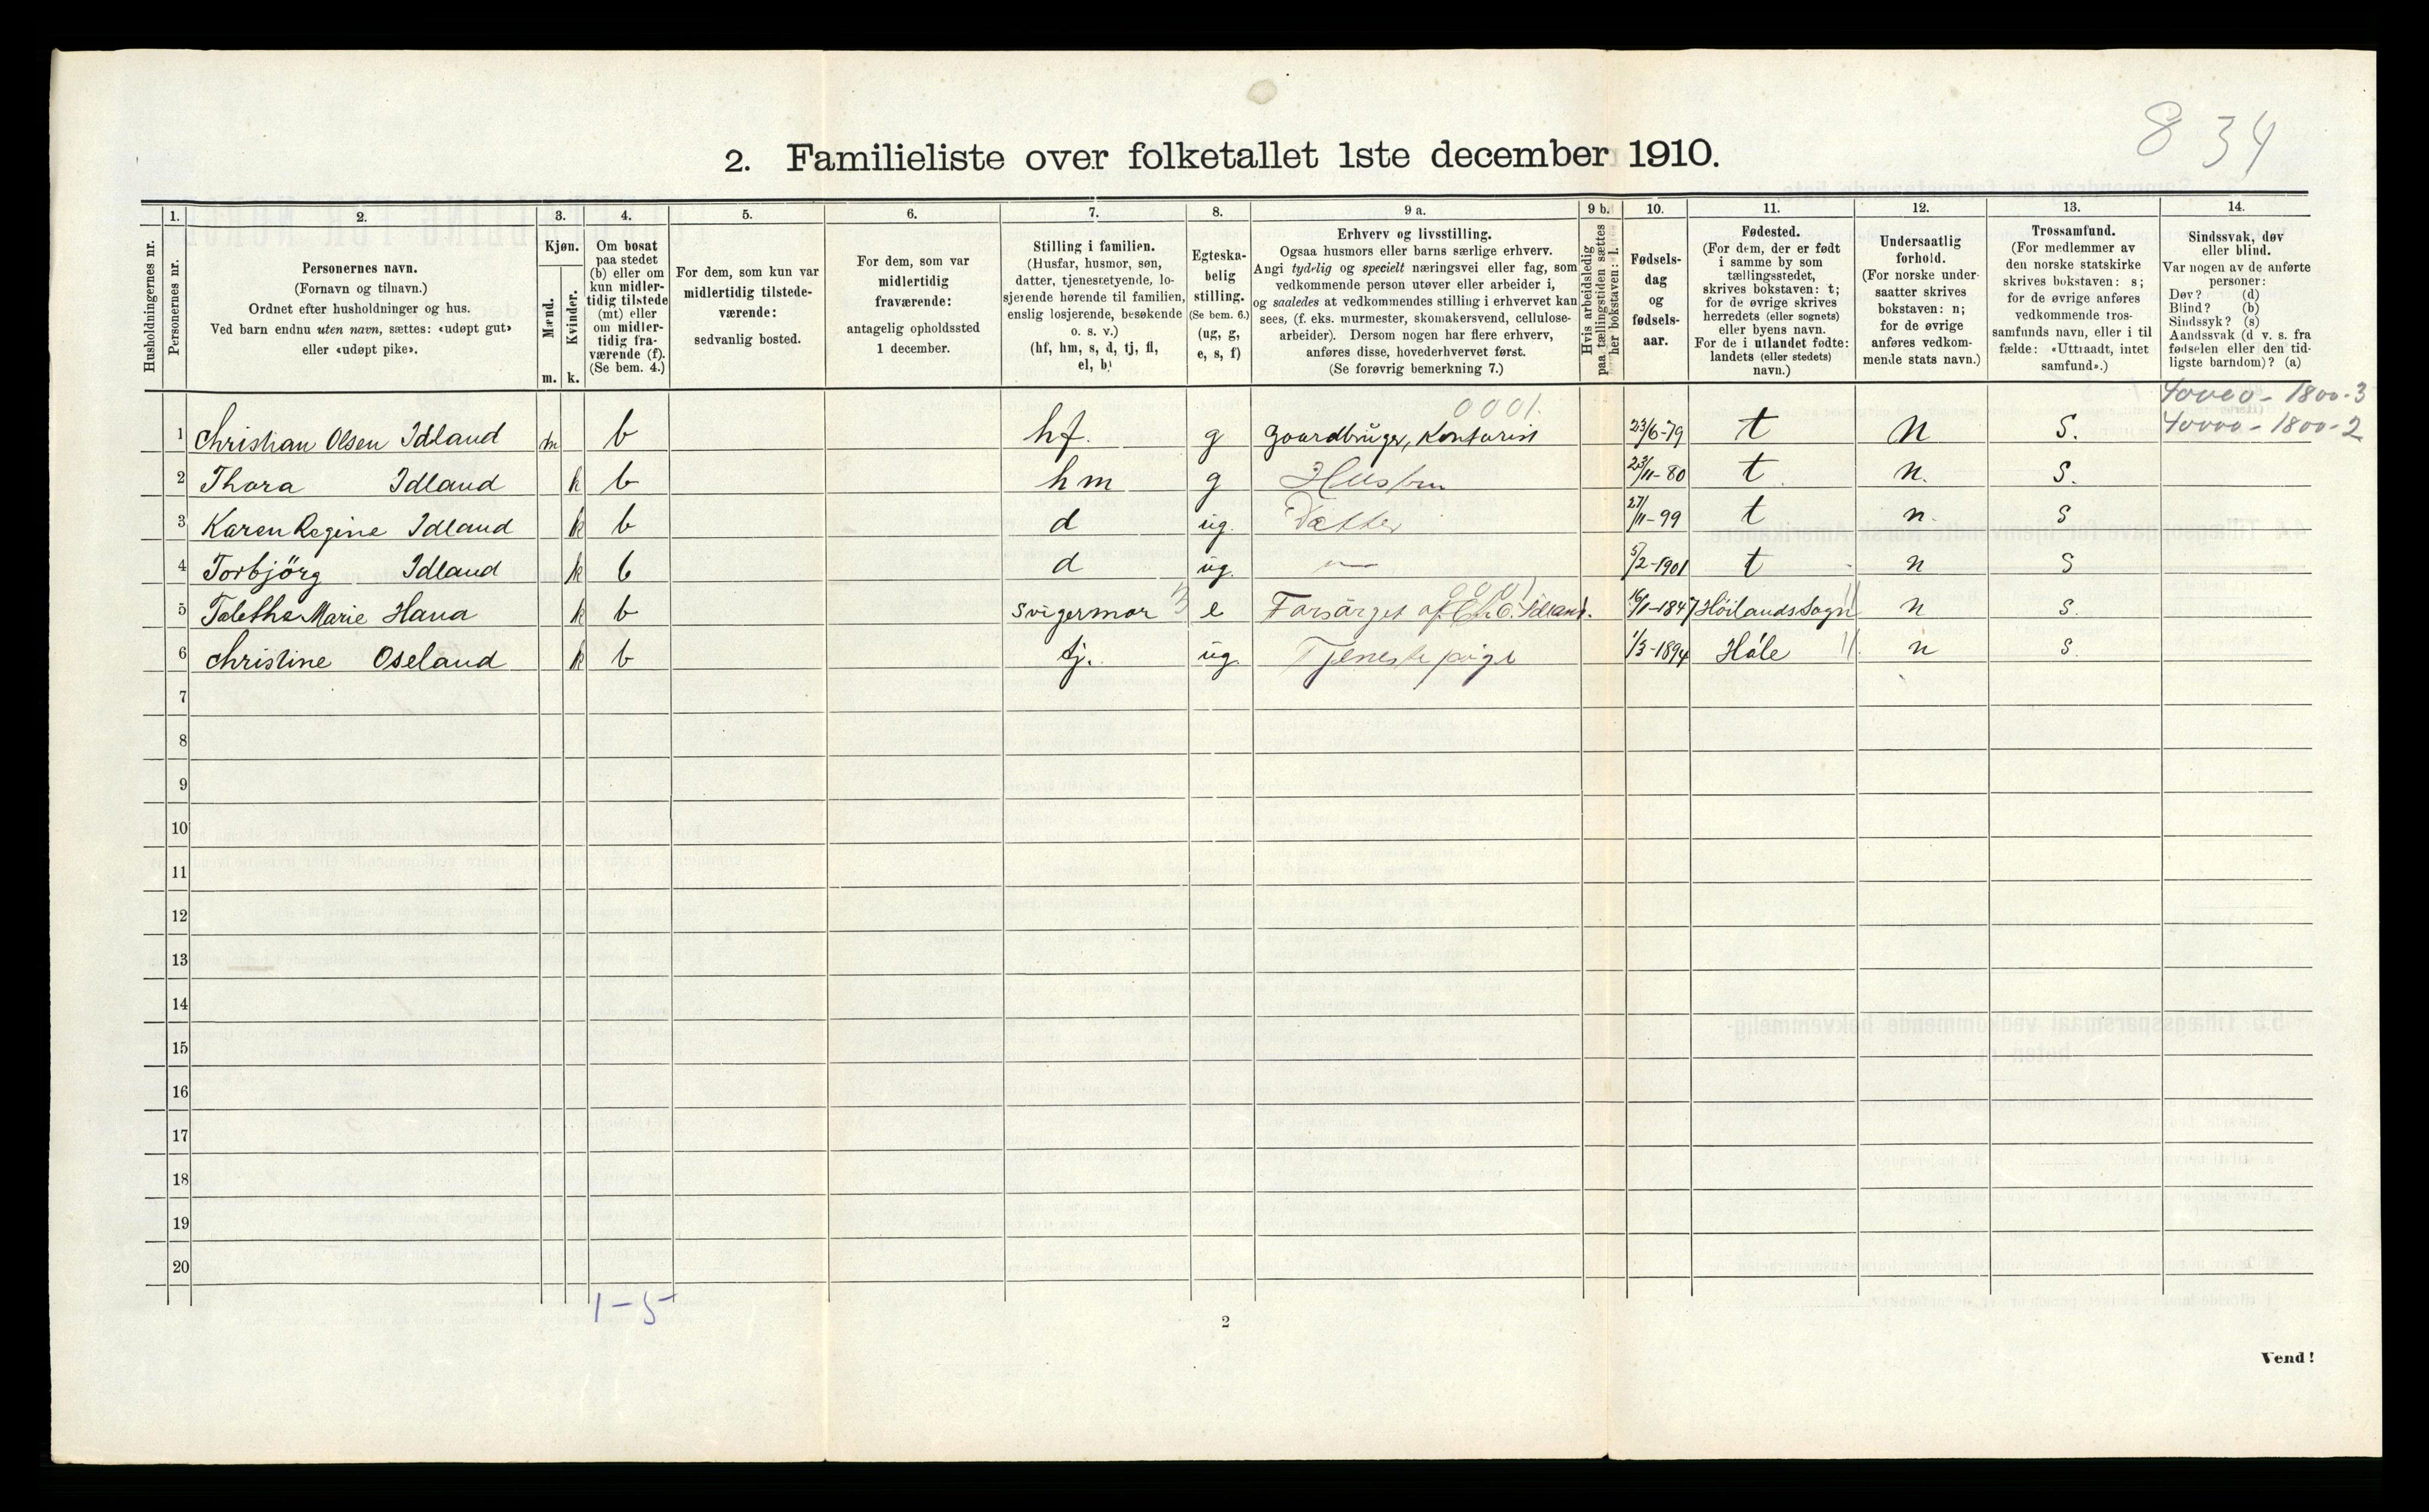 8 34
2. Familieliste over folketallet 1ste december 1910.
Husholdningernes nr.
1. Personernes nr.
2. Personernes navn.
(Fornavn og tilnavn.)
Ordnet efter husholdninger og hus.
Ved barn endnu uten navn, sættes: «udøpt gut»
eller «udøpt pike».
3. Kjøn.
Mænd. m.
Kvinder. k.
4. Om bosat
paa stedet
(b) eller om
kun midler-
tidig tilstede
(mt) eller
om midler-
tidig fra-
værende (f).
(Se bem. 4.)
5. For dem, som kun var
midlertidig tilstede-
værende:
sedvanlig bosted.
6. For dem, som var
midlertidig
fraværende:
antagelig opholdssted
1 december.
7. Stilling i familien.
(Husfar, husmor, søn,
datter, tjenestetyende, lo-
sjerende hørende til familien,
enslig losjerende, besøkende
o. s. v.)
(hf, hm, s, d, tj, fl,
el, b)
8. Egteska-
belig
stilling.
(Se bem. 6.)
(ug, g,
e, s, f)
9 a. Erhverv og livsstilling.
Ogsaa husmors eller barns særlige erhverv.
Angi tydelig og specielt næringsvei eller fag, som
vedkommende person utøver eller arbeider i,
og saaledes at vedkommendes stilling i erhvervet kan
sees, (f. eks. murmester, skomakersvend, cellulose-
arbeider). Dersom nogen har flere erhverv,
anføres disse, hovederhvervet først.
(Se forøvrig bemerkning 7.)
9 b. Hvis arbeidsledig
paa tællingstiden sættes
her bokstaven: l.
10. Fødsels-
dag
og
fødsels-
aar.
11. Fødested.
(For dem, der er født
i samme by som
tællingsstedet,
skrives bokstaven: t;
for de øvrige skrives
herredets (eller sognets)
eller byens navn.
For de i utlandet fødte:
landets (eller stedets)
navn.)
12. Undersaatlig
forhold.
(For norske under-
saatter skrives
bokstaven: n;
for de øvrige
anføres vedkom-
mende stats navn.)
13. Trossamfund.
(For medlemmer av
den norske statskirke
skrives bokstaven: s;
for de øvrige anføres
vedkommende tros-
samfunds navn, eller i til
fælde: «Uttraadt, intet
samfund».)
14. Sindssvak, døv
eller blind.
Var nogen av de anførte
personer:
Døv? (d)
Blind? (b)
Sindssyk? (s)
Aandssvak (d v. s. fra
fødselen eller den tid-
ligste barndom)? (a)
0001. 40000 - 1800-3
1 Christian Olsen Idland m b hf. g Gaardbruger, Kontorist 23/6-79 t n S. 40000 - 1800-2
2 Thora Idland k b hm g Husfru 23/11-80 t n. S.
3 Karen Regine Idland k b d ug. Datter 27/11-99 t n. S
4 Torbjörg Idland k b d ug. 5/2-1901 t n S
0001
5 Taletha Marie Hana k b Svigermor e Forsörget af Chr. O. Idland. 16/1-1847 Höilands Sogn n S.
6 Christine Oseland k b tj. ug. Tjenestepige 1/3-1894 Höle n S.
7
8
9
10
11
12
13
14
15
16
17
18
19
20
1-5
2
Vend!